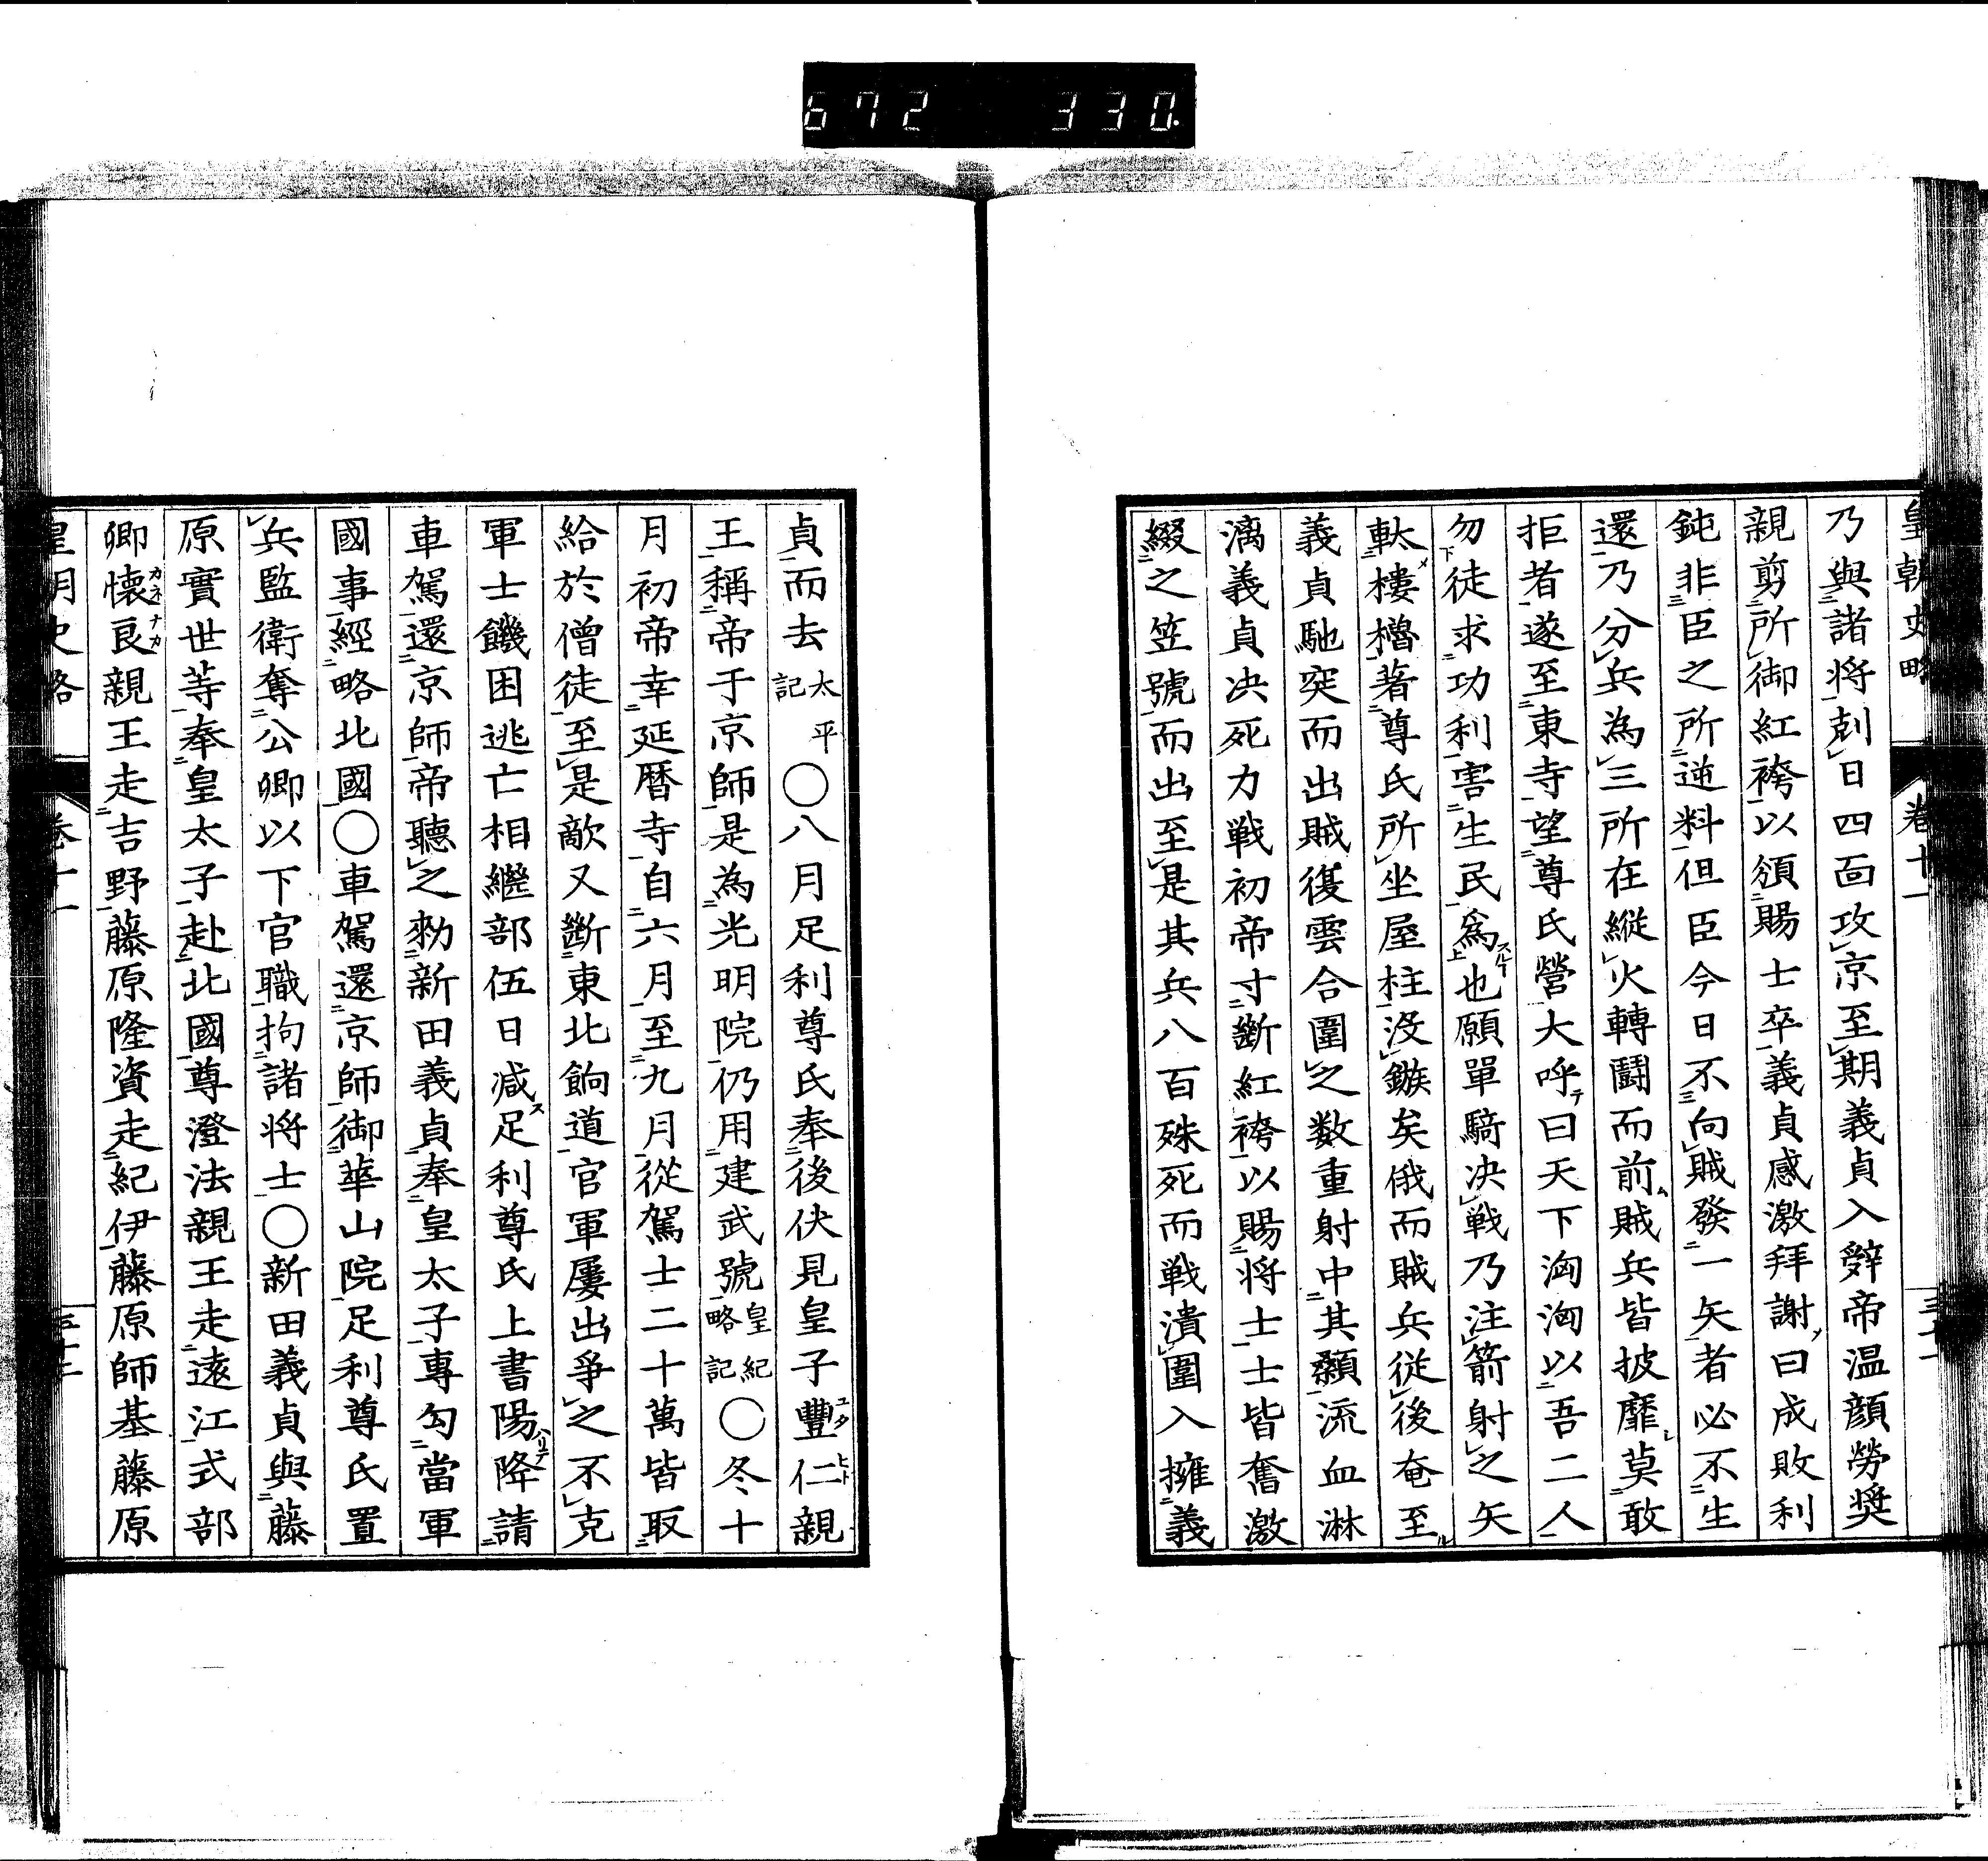 672 330.
皇朝史略 卷十一
乃與諸将剋日四面攻京至期義貞入辤帝温顔勞奨
親剪所御紅袴以頒賜士卒義貞感激拜謝曰成敗利
鈍非臣之所逆料但臣今日不向賊發一矢者必不生
還乃分兵為三所在縦火轉鬪而前賊兵皆披靡莫敢
拒者遂至東寺望尊氏營大呼曰天下洶洶以吾二人
勿徒求功利害生民爲也願單騎决戦乃注箭射之矢
軼樓櫓著尊氏所坐屋柱没鏃矣俄而賊兵従後奄至
義貞馳突而出賊復雲合圍之数重射中其顙流血淋
漓義貞决死力戦初帝寸斷紅袴以賜将士士皆奮激
綴之笠號而出至是其兵八百殊死而戦潰圍入擁義
貞而去太平記〇八月足利尊氏奉後伏見皇子豐仁親
王稱帝于京師是為光明院仍用建武號皇紀略記〇冬十
月初帝幸延暦寺自六月至九月從駕士二十萬皆取
給於僧徒至是敵又斷東北餉道官軍屢出爭之不克
軍士饑困逃亡相繼部伍日減足利尊氏上書陽降請
車駕還京師帝聽之勑新田義貞奉皇太子專勾當軍
國事經略北國〇車駕還京師御華山院足利尊氏置
兵監衛奪公卿以下官職拘諸将士〇新田義貞與藤
原實世等奉皇太子赴北國尊澄法親王走遠江式部
卿懐良親王走吉野藤原隆資走紀伊藤原師基藤原